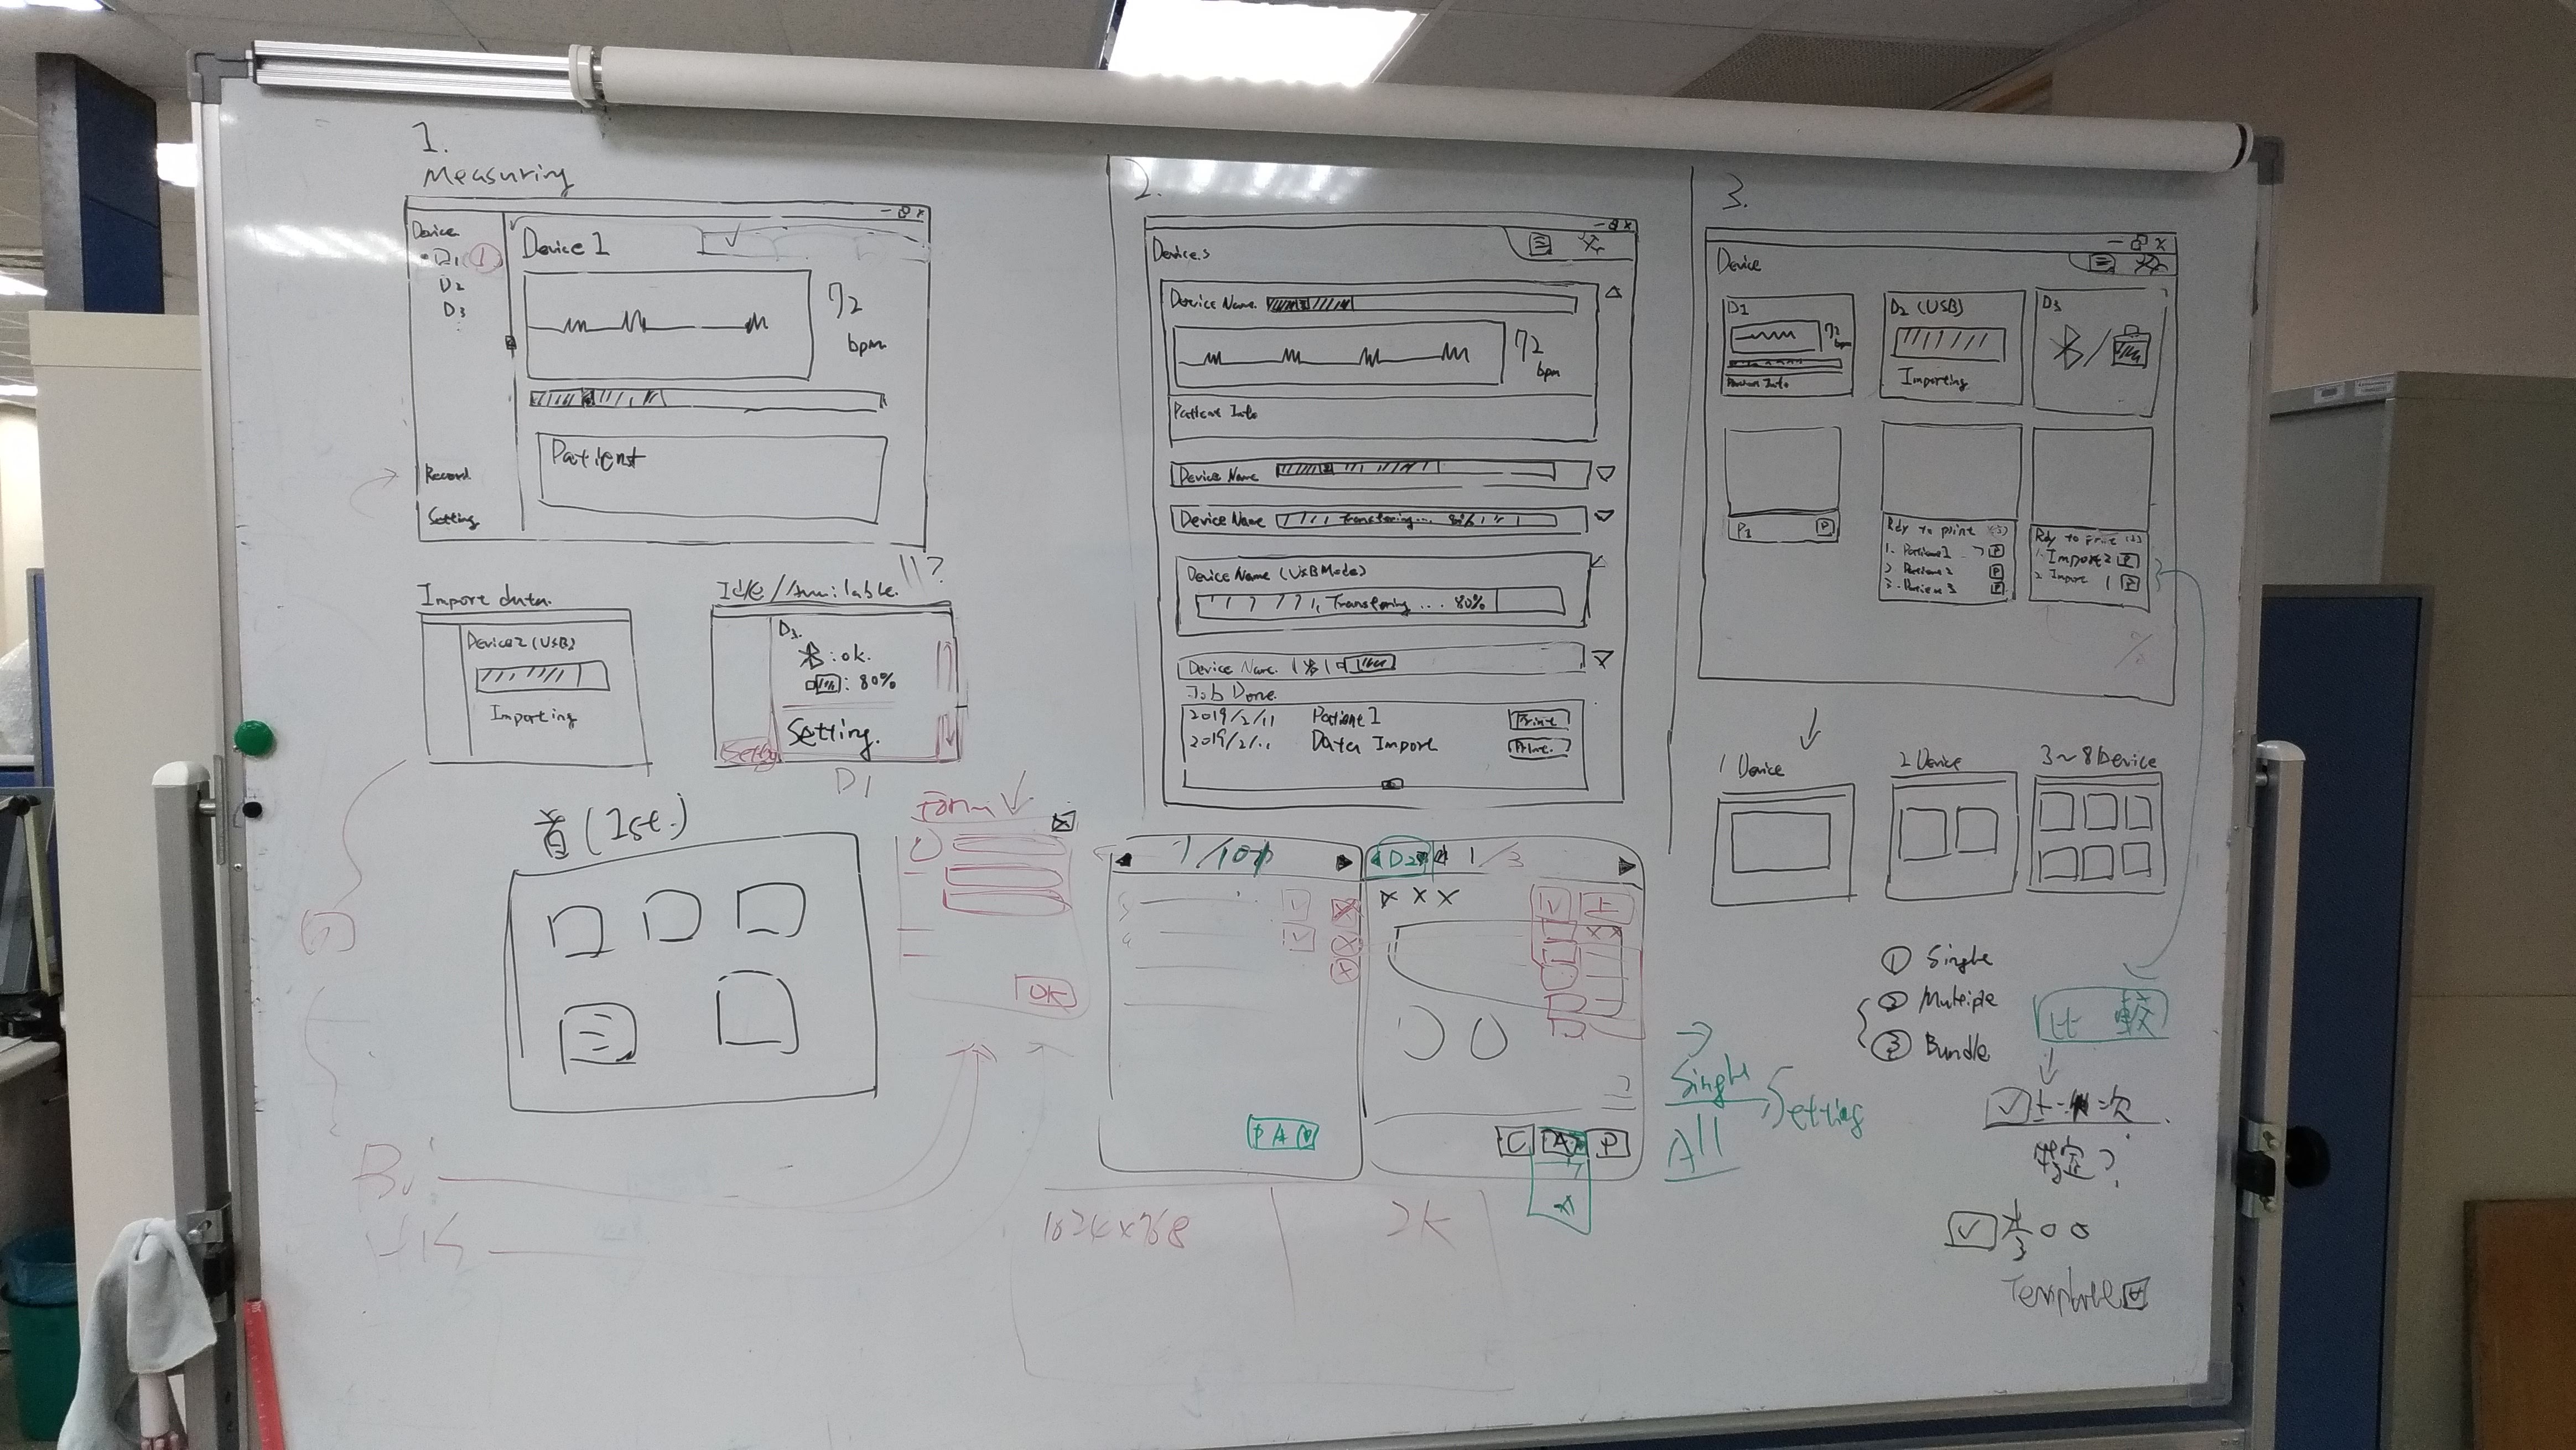 1.
Measuring
Device
D1
1
D2
D3
Device 1
72
bpm
Patient
Record
Setting
Import data
Device2 (USB)
Importing
Idle / Available
?
D3.
: ok.
: 80%
Setting.
D1
首 (1st.)
Form
OK
1024x768
2K
2.
Devices
Device Name
72
bpm
Patient Info
Device Name
Device Name
Transfering... 80%
Device Name (USB Mode)
Transfering ... 80%
Device Name
Job Done
2019/2/11 Patient 1 Print
2019/2/11 Data Import Print
1/10p
D2
1/3
x x x
P A
C
A
P
Single
All
Setting
3.
Device
D1
72
bpm
Patient Info
D2 (USB)
Importing
D3
P1
P
Rdy to print (3)
1. Patient 1 P
2 Patient 2 P
3. Patient 3 P
Rdy to print (2)
1. Import 2 P
2 Import 1 P
1 Device
2 Device
3~8 Device
① Single
② Multiple
③ Bundle
比較
上一次
特定?
Template